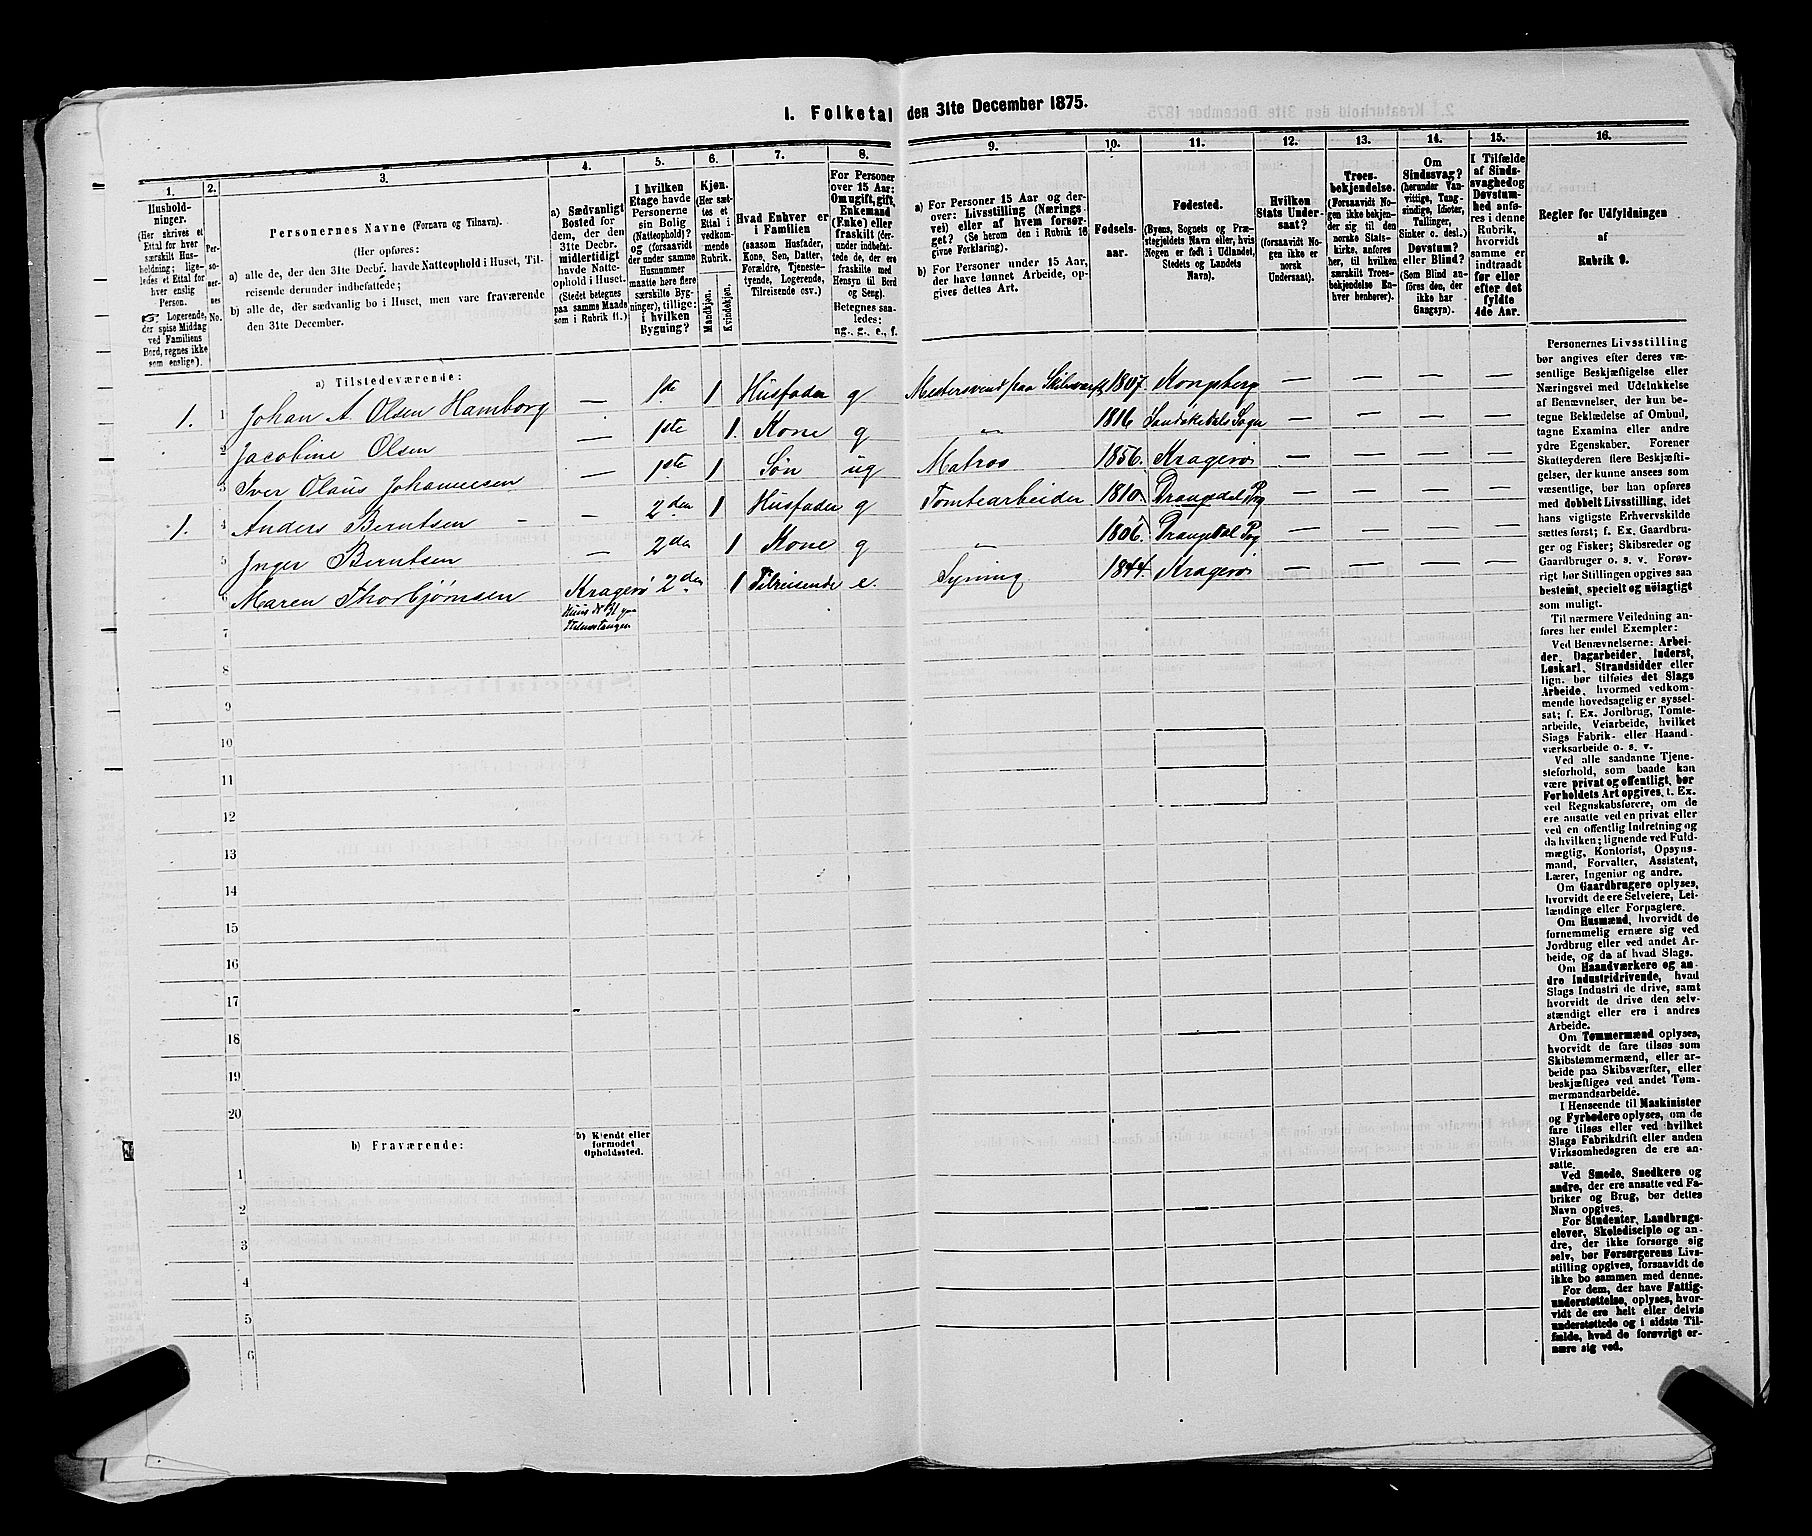 1. Folketal den 31te December 1875.
1.
Husholdninger.
(Her skrives et
Ettal for hver
særskilt Husholdning; ligeledes et Ettal for
hver enslig
Person.
Logerende,
der spise Middag
ved Familiens
Bord, regnes ikke
som enslige).
2.
Personernes
No.
3.
Personernes Navne (Fornavn og Tilnavn).
(Her opføres:
a) alle de, der den 31te Decbr. havde Natteophold i Huset, Tilreisende derunder indbefattede;
b) alle de, der sædvanlig bo i Huset, men vare fraværende
den 31te December.
4.
a) Sædvanligt
Bosted for
dem, der den
31te Decbr.
midlertidigt
havde Natteophold i Huset.
(Stedet betegnes
paa samme Maade
som i Rubrik 11.)
5.
I hvilken
Etage havde
Personerne
sin Bolig
(Natteophold)?
og (forsaavidt
der under samme
Husnummer
maatte høre flere
særskilte Bygninger), tillige:
i hvilken
Bygning?
6.
Kjøn.
(Her sættes et
Ettal i
vedkommende
Rubrik.
Mandkjøn.
Kvindekjøn.
7.
Hvad Enhver er
i Familien
(saasom Husfader,
Kone, Søn, Datter,
Forældre, Tjenestetyende, Logerende,
Tilreisende osv.)
8.
For Personer
over 15 Aar:
Om ugift, gift,
Enkemand
(Enke) eller
fraskilt (derunder indbefattede de, der ere
fraskilte med
Hensyn til Bord
og Seng).
Betegnes saaledes:
ug., g., e., f.
9.
a) For Personer 15 Aar og derover: Livsstilling (Næringsvei) eller af hvem forsørget? (Se herom den i Rubrik 16
givne Forklaring).
b) For Personer under 15 Aar,
der have lønnet Arbeide, opgives dettes Art.
10.
Fødselsaar.
11.
Fødested.
(Byens, Sognets og Præstegjeldets Navn eller, hvis
Nogen er født i Udlandet,
Stedets og Landets
Navn).
12.
Hvilken
Stats Undersaat?
(forsaavidt Nogen ikke er
norsk
Undersaat).
13.
Troesbekjendelse.
(Forsaavidt Nogen ikke bekjender sig til den
norske Statskirke, anføres
her, til hvilken
særskilt Troesbekjendelse Enhver henhører).
14.
Om
Sindssvag?
(herunder Vanvittige, Tungsindige, Idioter,
Tullinger,
Sinker o. desl.)
Døvstum?
eller Blind?
(Som Blind anføres den, der
ikke har
Gangsyn).
15.
I Tilfælde
af Sindssvaghed og
Døvstumhed anføres i denne
Rubrik,
hvorvidt
samme er
indtraadt
før eller
efter det
fyldte
4de Aar.
16.
Regler for Udfyldningen
af
Rubrik 9.
a) Tilstedeværende:
1. 1 Johan A. Olsen Hamborg — 1ste 1 Husfader g Mestersvend paa Skibsværft 1807. Kongsberg — — — —
2 Jacobine Olsen — 1ste 1. Kone g " 1816 Sandøkedals Sogn — — — —
3 Iver Olaus Johannesen — 1ste 1 Søn ug Matros 1856. Kragerø — — — —
1. 4 Anders Berntsen — — 2den 1 Husfader g Tomtearbeider 1810. Drangedal Pg — — — —
5 Inger Berntsen — 2den 1 Kone g " 1806. Drangedal Pg — — — —
6 Maren Thorbjørnsen Kragerø 2den 1 Tilreisende e. Syning 1844. Kragerø — — — —
Huus No paa
7
8
9
10
11
12
13
14
15
16
17
18
19
20
b) Fraværende:
b) Kjendt eller
formodet
Opholdssted.
1
2
3
4
5
6
Personernes Livsstilling
bør angives efter deres væsentlige Beskjæftigelse eller
Næringsvei med Udelukkelse
af Benævnelser, der kun betegne Beklædelse af Ombud,
tagne Examina eller andre
ydre Egenskaber. Forener
Skatteyderen flere Beskjæftigelser, der kunne ansees som
væsentlige, bør han opføres
med dobbelt Livsstilling, idet
hans vigtigste Erhvervskilde
sættes først; f. Ex. Gaardbruger og Fisker; Skibsreder og
Gaardbruger o. s. v. Forøvrigt bør Stillingen opgives saa
bestemt, specielt og nøiagtigt
som muligt.
Til nærmere Veiledning anføres her endel Exempler:
Ved Benævnelserne: Arbeider, Dagarbeider, Inderst,
Løskarl, Strandsidder eller
lign. bør tilføies det Slags
Arbeide, hvormed vedkommende hovedsagelig er sysselsat; f. Ex. Jordbrug, Tomtearbeide, Veiarbeide, hvilket
Slags Fabrik- eller Haandværksarbeide o. s. v.
Ved alle saadanne Tjenesteforhold, som baade kan
være privat og offentligt, bør
Forholdets Art opgives, t. Ex.
ved Regnskabsførere, om de
ere ansatte ved en privat eller
ved en offentlig Indretning og
da hvilken; lignende ved Fuldmægtig, Kontorist, Opsynsmand, Forvalter, Assistent,
Lærer, Ingeniør og andre.
Om Gaardbrugere oplyses,
hvorvidt de ere Selveiere, Leilændinge eller Forpagtere.
Om Husmænd, hvorvidt de
fornemmelig ernære sig ved
Jordbrug eller ved andet Arbeide, og da af hvad Slags.
Om Haandværkere og andre Industridrivende, hvad
Slags Industri de drive, samt
hvorvidt de drive den selvstændigt eller ere i andres
Arbeide.
Om Tømmermænd oplyses,
hvorvidt de fare tilsøs som
Skibstømmermænd, eller arbeide paa Skibsværfter, eller
beskjæftiges ved andet Tømmermandsarbeide.
I Henseende til Maskinister
og Fyrbødere oplyses, om de
fare tilsøs eller ved hvilket
Slags Fabrikdrift eller anden
Virksomhedsgren de ere ansatte.
Ved Smede, Snedkere og
andre, der ere ansatte ved Fabriker og Brug, bør dettes
Navn opgives.
For Studenter, Landbrugselever, Skoledisciple og andre, der ikke forsørge sig
selv, bør Forsørgerens Livsstilling opgives, forsaavidt de
ikke bo sammen med denne.
For dem, der have Fattigunderstøttelse, oplyses, hvorvidt de ere helt eller delvis
understøttede og i sidste Tilfælde, hvad de forøvrigt ernære sig ved.